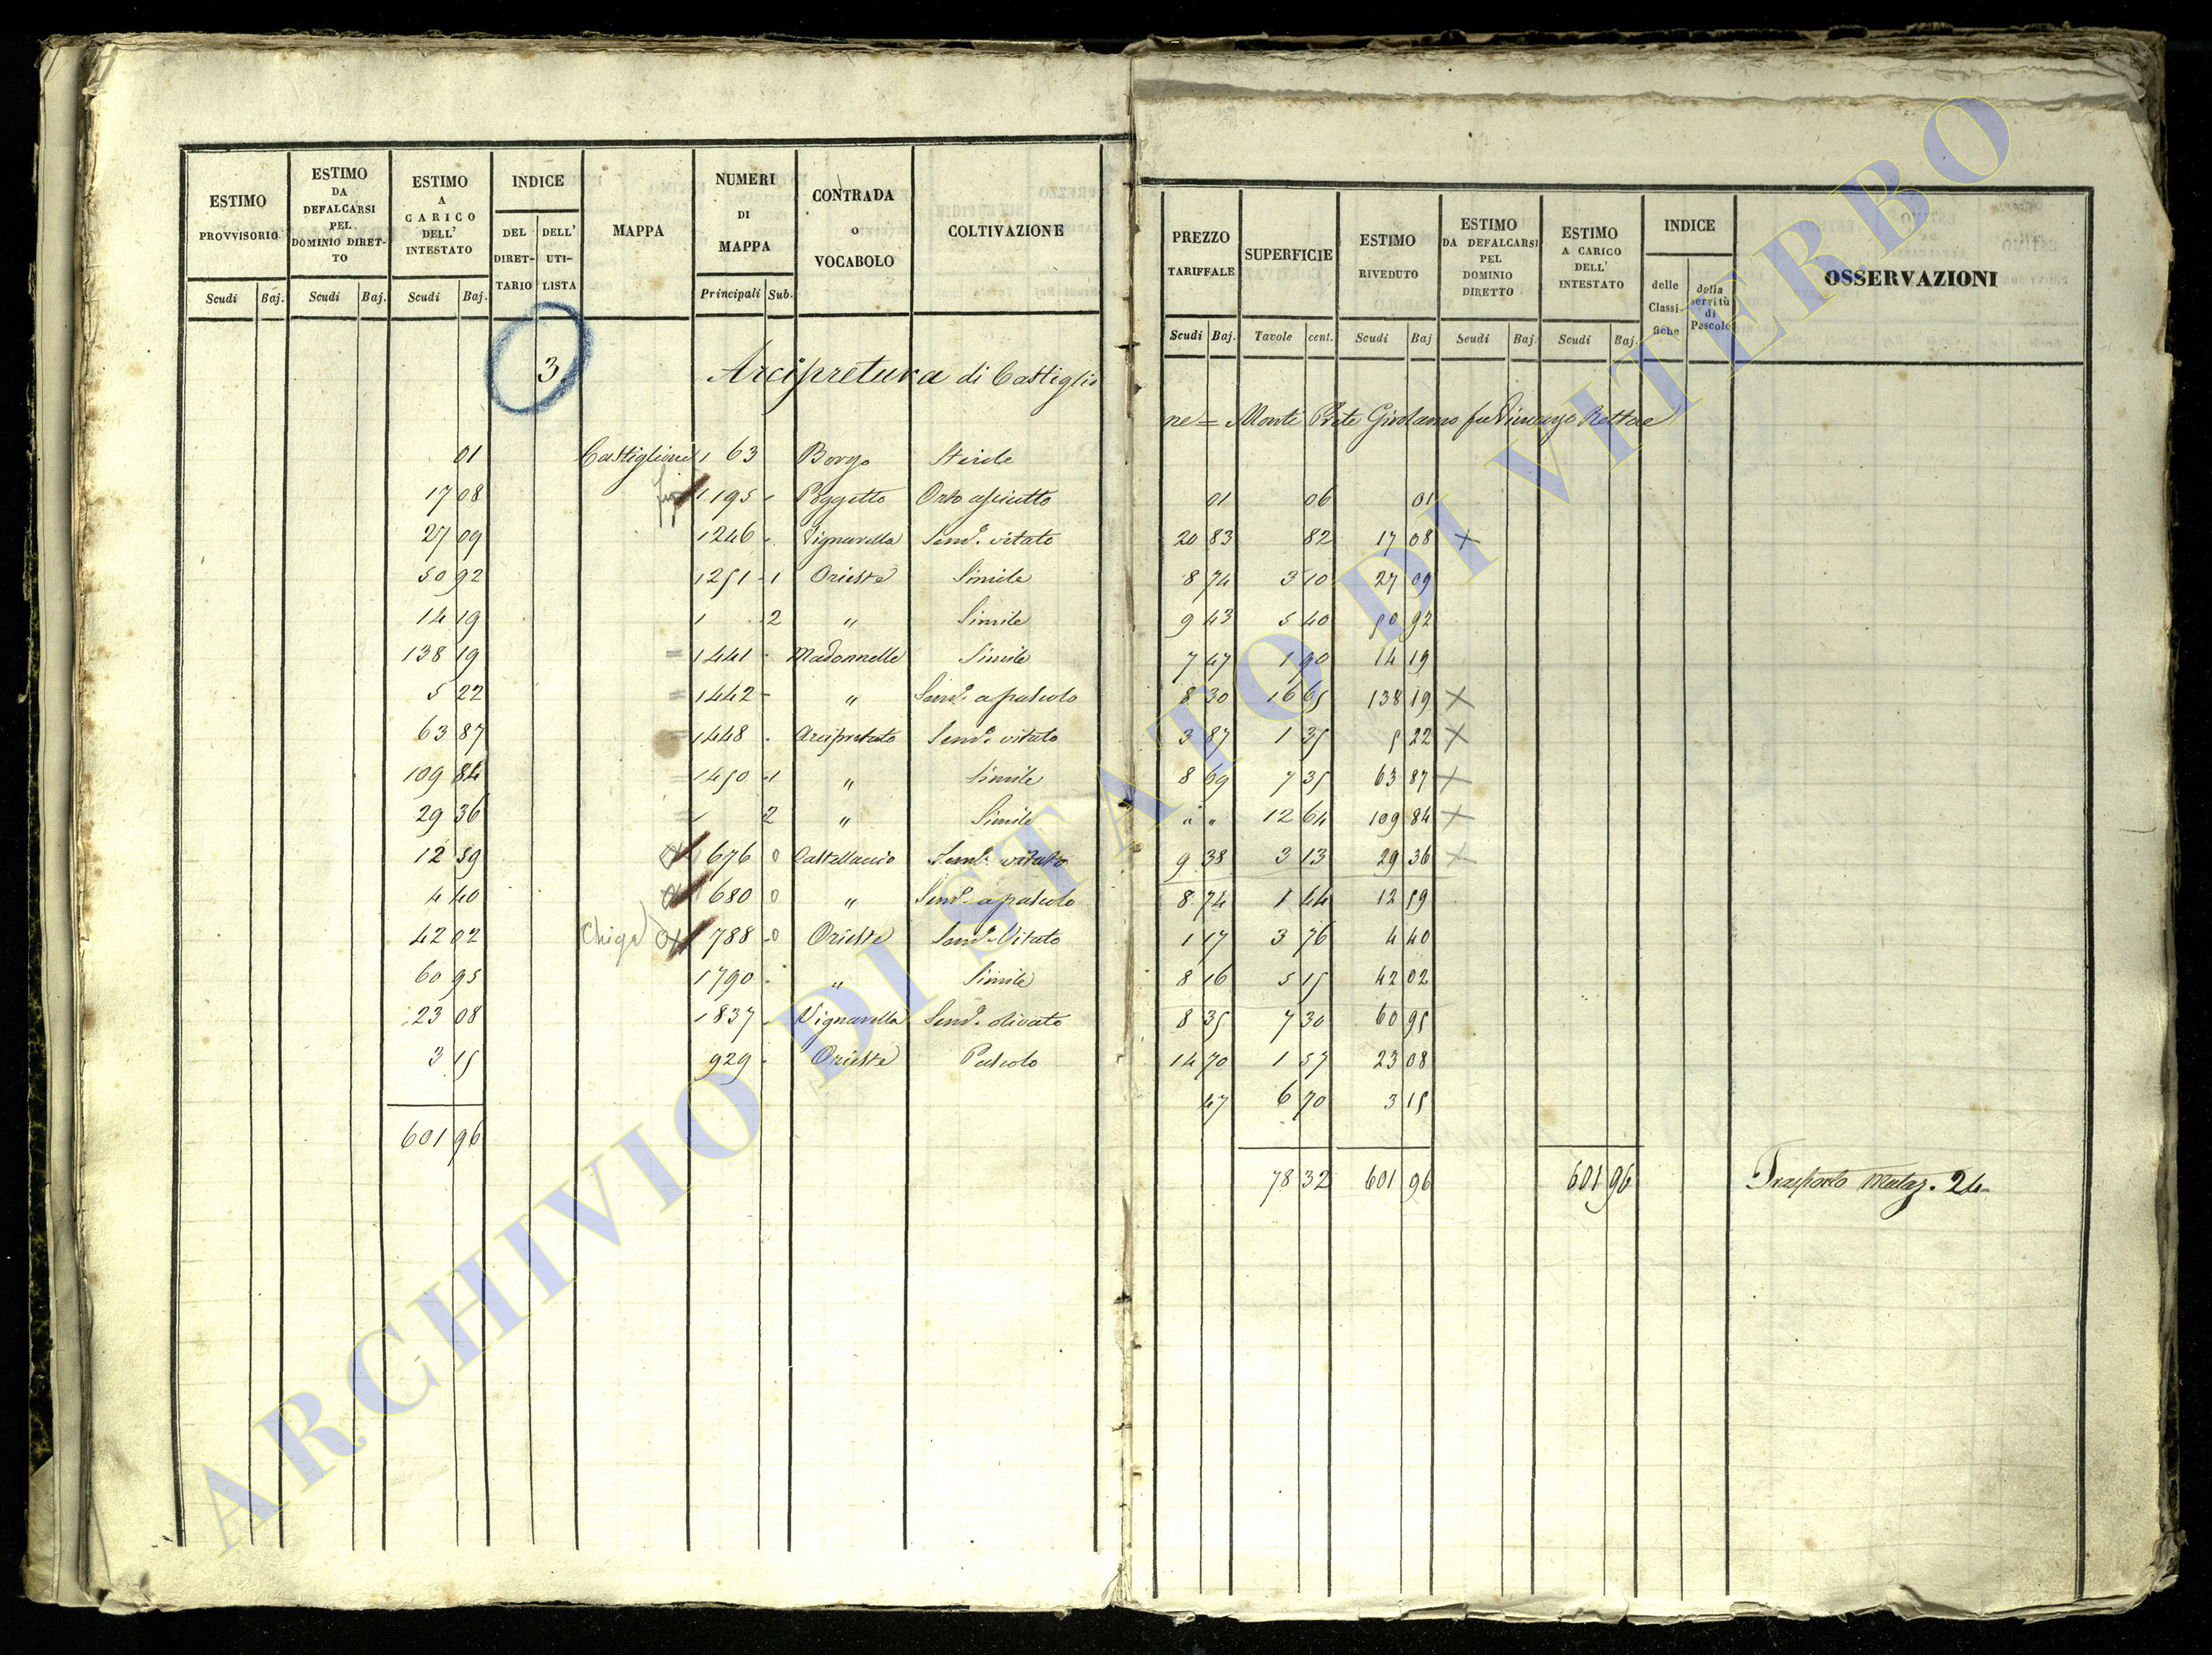 ESTIMO PROVVISORIO
Scudi Baj.
ESTIMO DA DEFALCARSI PEL DOMINIO DIRET-TO
Scudi Baj.
ESTIMO A CARICO DELL' INTESTATO
Scudi Baj.
INDICE
DEL DIRET-TARIO
DELL' UTI-LISTA
MAPPA
NUMERI DI MAPPA
Principali Sub.
CONTRADA o VOCABOLO
COLTIVAZIONE
3 Arcipretura di Castiglio
01 Castiglione 1 63 Borgo Sterile
17 08 1 195 - Poggetto Orto asciutto
27 09 1 246 - Vignarella Semo. vitato
50 92 1 251 - 1 Orieste Simile
14 19 1 2 " Simile
138 19 = 1 441 - Madonnelle Simile
5 22 = 1 442 - " Semo. a pascolo
63 87 = 1 448 - Arcipretato Semo. vitato
109 84 = 1 450 - 1 " Simile
29 36 = 1 2 " Simile
12 59 1 676 0 Castellaccio Semo. vitato
4 40 1 680 0 " Semo. a pascolo
42 02 1 788 - 0 Orieste Semo. Vitato
60 95 1 790 - " Simile
23 08 1 837 - Vignarella Semo. olivato
3 15 929 - Orieste Pascolo
601 96
PREZZO TARIFFALE
Scudi Baj.
SUPERFICIE
Tavole cent.
ESTIMO RIVEDUTO
Scudi Baj
ESTIMO DA DEFALCARSI PEL DOMINIO DIRETTO
Scudi Baj.
ESTIMO A CARICO DELL' INTESTATO
Scudi Baj.
INDICE
delle Classi-fiche
della servitù di Pascolo
OSSERVAZIONI
ne = Monti Prete Girolamo fu Vincenzo Rettore
01 06 01
20 83 82 17 08 X
8 74 3 10 27 09
9 43 5 40 50 92
7 47 1 90 14 19
8 30 16 65 138 19 X
3 87 1 35 5 22 X
8 69 7 35 63 87 X
" " 12 64 109 84 X
9 38 3 13 29 36 X
8 74 1 44 12 59
1 17 3 76 4 40
8 16 5 15 42 02
8 35 7 30 60 95
14 70 1 57 23 08
47 6 70 3 15
78 32 601 96 601 96 Trasporto
ARCHIVIO DI STATO DI VITERBO